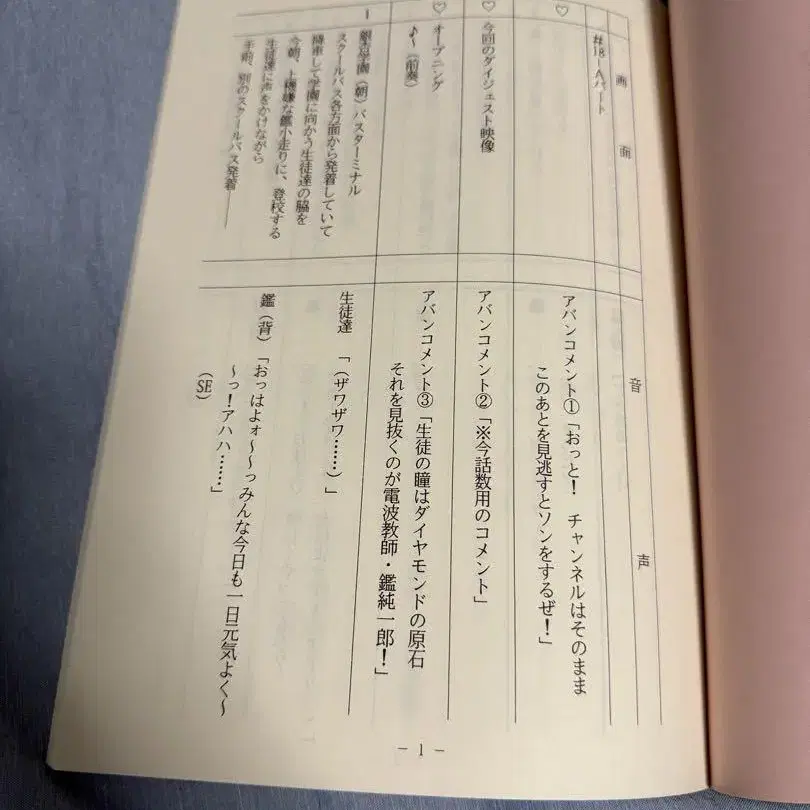 画面
音声
#18―Aパート
♡
アバンコメント①「おっと！　チャンネルはそのまま
このあとを見逃すとソンをするぜ！」
♡　今回のダイジェスト映像
アバンコメント②「※今話数用のコメント」
♡　オープニング
♪～（前奏）
アバンコメント③「生徒の瞳はダイヤモンドの原石
それを見抜くのが電波教師・鑑純一郎！」
1
銀杏学園（朝）バスターミナル
スクールバス各方面から発着していて
降車して学園に向かう生徒達の脇を
今朝、上機嫌な鑑小走りに、登校する
生徒達に声をかけながら
手前、別のスクールバス発着――
生徒達　「（ザワザワ……）」
鑑（背）「おっはよォ～～っみんな今日も一日元気よく～
～っ！アハハ……」
（SE）
－1－